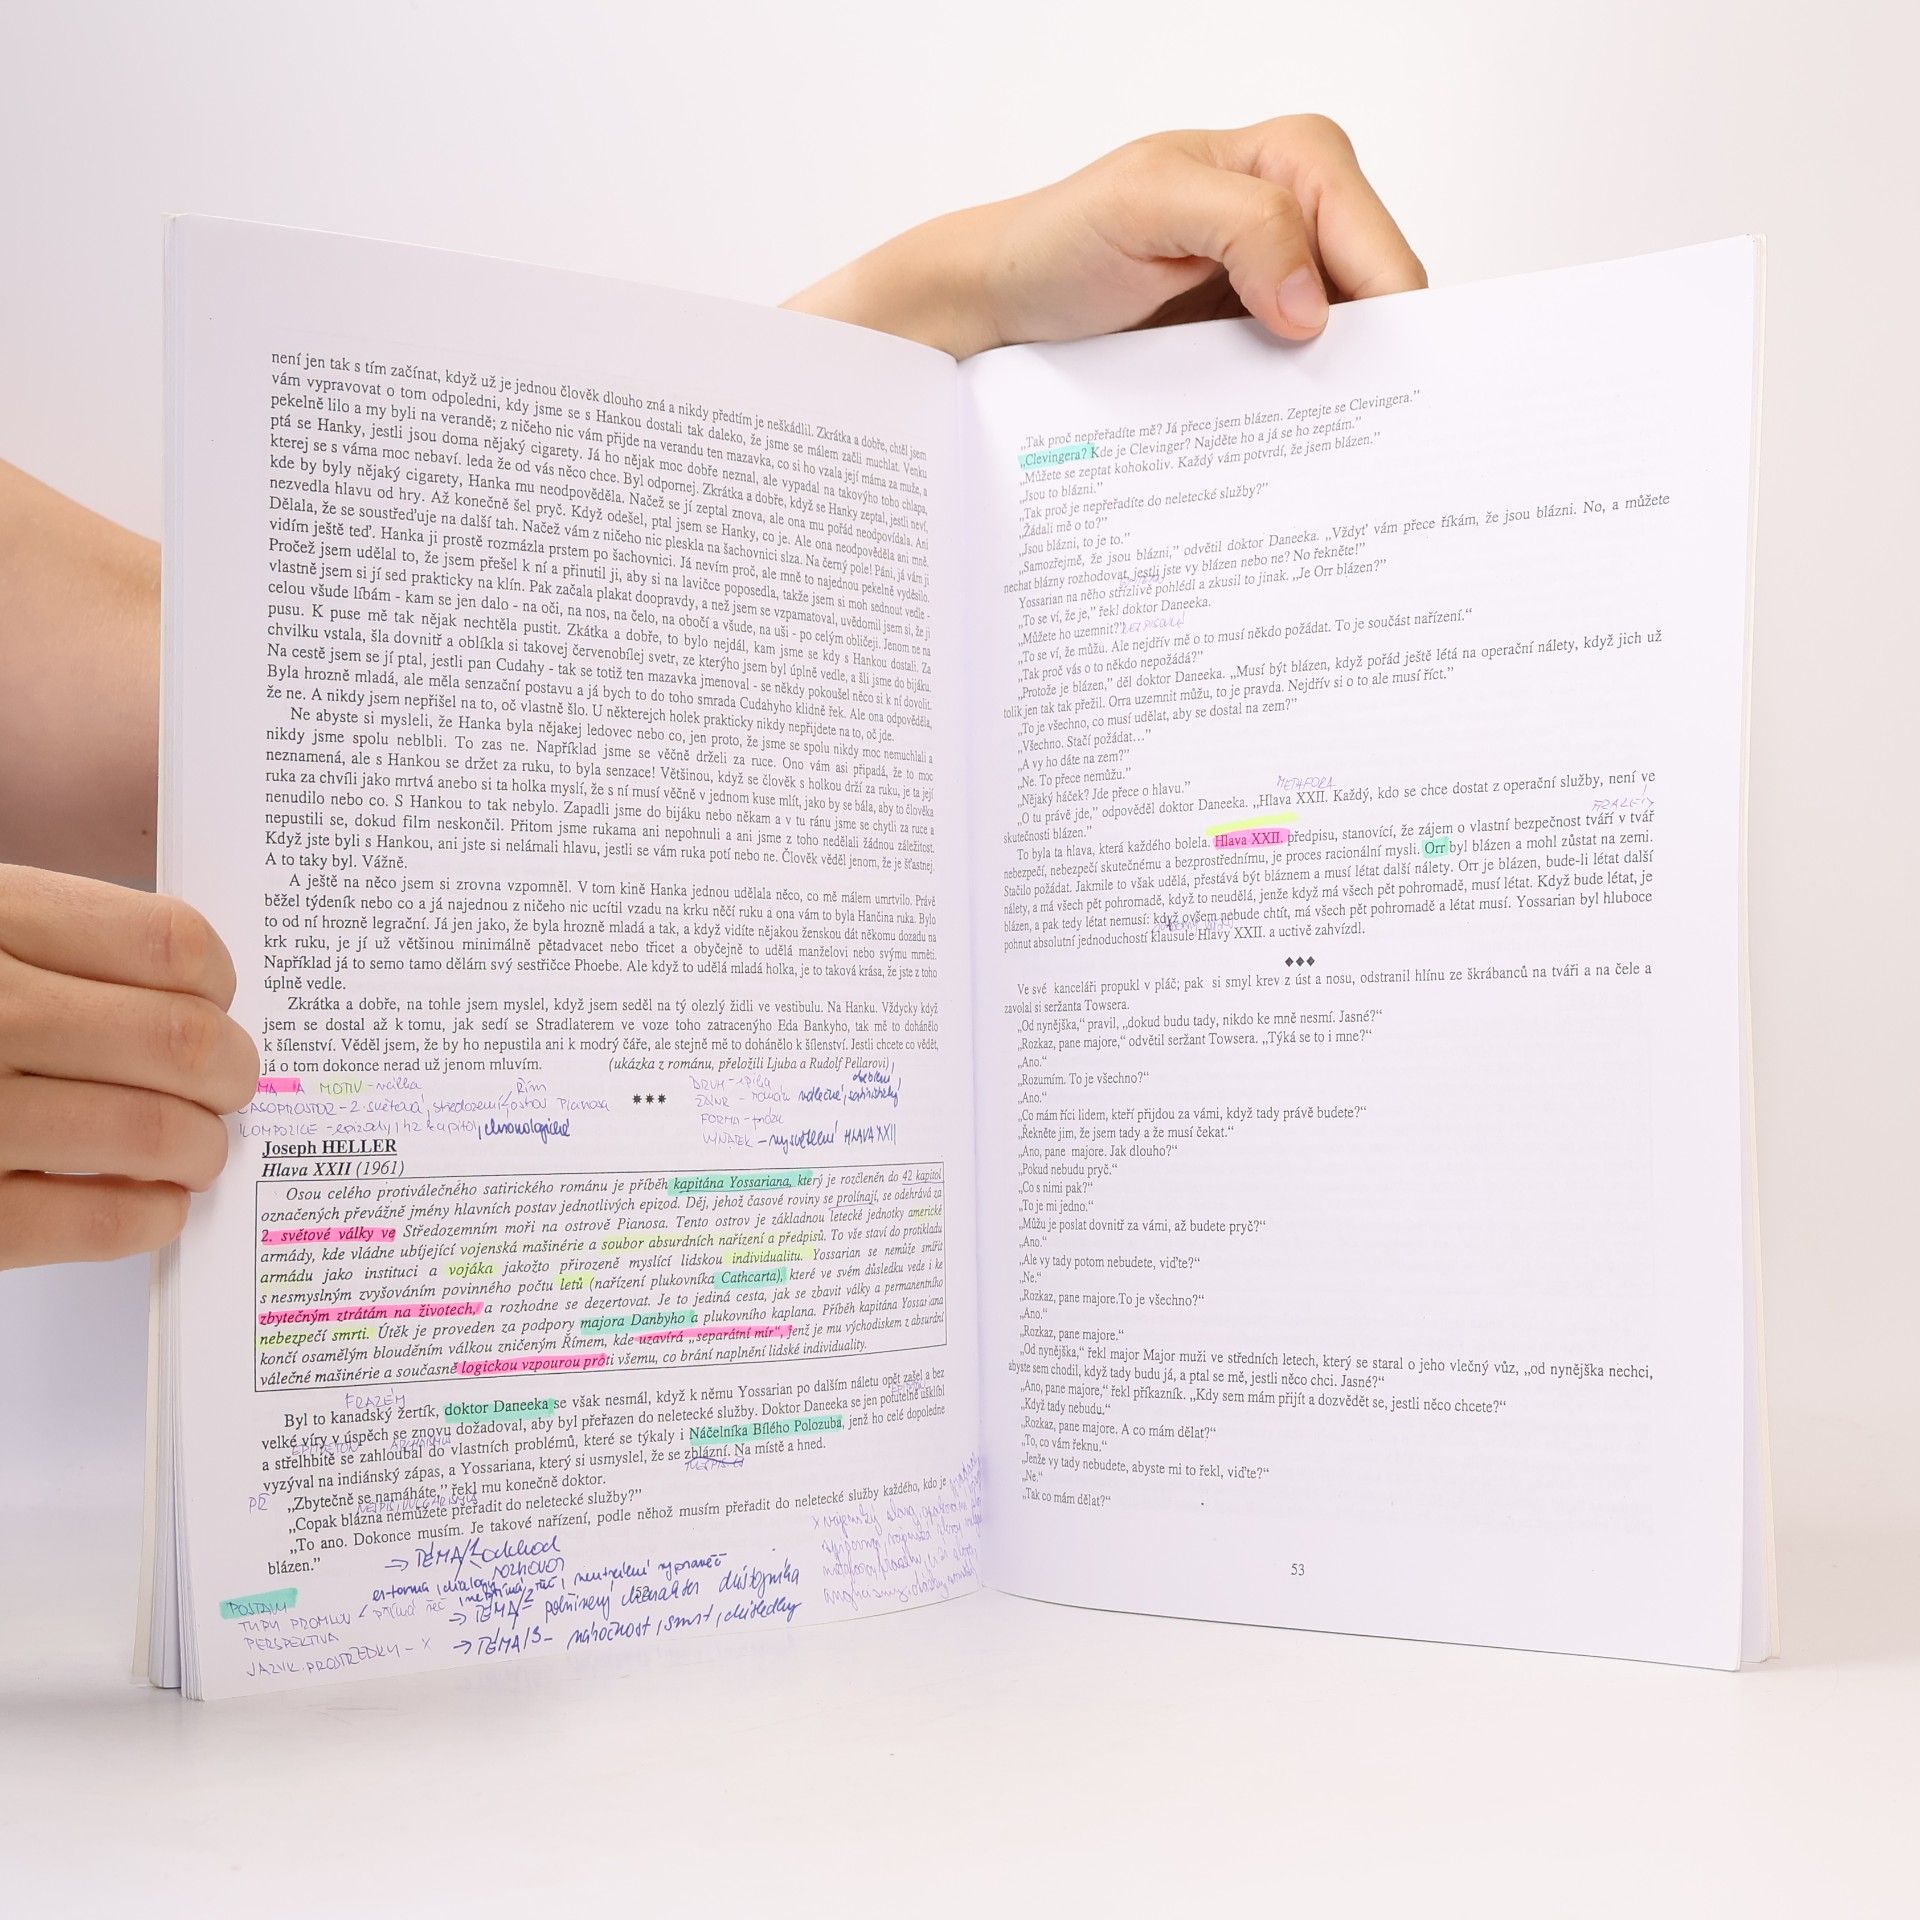 není jen tak s tím začínat, když už je jednou člověk dlouho zná a nikdy předtím je neškádlil. Zkrátka a dobře, chtěl jsem
vám vypravovat o tom odpoledni, kdy jsme se s Hankou dostali tak daleko, že jsme se málem začli muchlat. Venku
pekelně lilo a my byli na verandě; z ničeho nic vám přijde na verandu ten mazavka, co si ho vzala její máma za muže, a
ptá se Hanky, jestli jsou doma nějaký cigarety. Já ho nějak moc dobře neznal, ale vypadal na takovýho toho chlapa,
kterej se s váma moc nebaví. leda že od vás něco chce. Byl odpornej. Zkrátka a dobře, když se Hanky zeptal, jestli neví,
kde by byly nějaký cigarety, Hanka mu neodpověděla. Načež se jí zeptal znova, ale ona mu pořád neodpovídala. Ani
nezvedla hlavu od hry. Až konečně šel pryč. Když odešel, ptal jsem se Hanky, co je. Ale ona neodpověděla ani mně.
Dělala, že se soustřeďuje na další tah. Načež vám z ničeho nic pleskla na šachovnici slza. Na černý pole! Páni, já vám ji
vidím ještě teď. Hanka ji prostě rozmázla prstem po šachovnici. Já nevím proč, ale mně to najednou pekelně vyděsilo.
Pročež jsem udělal to, že jsem přešel k ní a přinutil ji, aby si na lavičce poposedla, takže jsem si moh sednout vedle -
vlastně jsem si jí sed prakticky na klín. Pak začala plakat doopravdy, a než jsem se vzpamatoval, uvědomil jsem si, že ji
celou všude líbám - kam se jen dalo - na oči, na nos, na čelo, na obočí a všude, na uši - po celým obličeji. Jenom ne na
pusu. K puse mě tak nějak nechtěla pustit. Zkátka a dobře, to bylo nejdál, kam jsme se kdy s Hankou dostali. Za
chvilku vstala, šla dovnitř a oblíkla si takovej červenobílej svetr, ze kterýho jsem byl úplně vedle, a šli jsme do bijáku.
Na cestě jsem se jí ptal, jestli pan Cudahy - tak se totiž ten mazavka jmenoval - se někdy pokoušel něco si k ní dovolit.
Byla hrozně mladá, ale měla senzační postavu a já bych to do toho smrada Cudahyho klidně řek. Ale ona odpověděla,
že ne. A nikdy jsem nepřišel na to, oč vlastně šlo. U některejch holek prakticky nikdy nepřijdete na to, oč jde.
Ne abyste si mysleli, že Hanka byla nějakej ledovec nebo co, jen proto, že jsme se spolu nikdy moc nemuchlali a
nikdy jsme spolu neblbli. To zas ne. Například jsme se věčně drželi za ruce. Ono vám asi připadá, že to moc
neznamená, ale s Hankou se držet za ruku, to byla senzace! Většinou, když se člověk s holkou drží za ruku, je ta její
ruka za chvíli jako mrtvá anebo si ta holka myslí, že s ní musí věčně v jednom kuse mlít, jako by se bála, aby to člověka
nenudilo nebo co. S Hankou to tak nebylo. Zapadli jsme do bijáku nebo někam a v tu ránu jsme se chytli za ruce a
nepustili se, dokud film neskončil. Přitom jsme rukama ani nepohnuli a ani jsme z toho nedělali žádnou záležitost.
Když jste byli s Hankou, ani jste si nelámali hlavu, jestli se vám ruka potí nebo ne. Člověk věděl jenom, že je šťastnej.
A to taky byl. Vážně.
A ještě na něco jsem si zrovna vzpomněl. V tom kině Hanka jednou udělala něco, co mě málem umrtvilo. Právě
běžel týdeník nebo co a já najednou z ničeho nic ucítil vzadu na krku něčí ruku a ona vám to byla Hančina ruka. Bylo
to od ní hrozně legrační. Já jen jako, že byla hrozně mladá a tak, a když vidíte nějakou ženskou dát někomu dozadu na
krk ruku, je jí už většinou minimálně pětadvacet nebo třicet a obyčejně to udělá manželovi nebo svýmu mrněti.
Například já to semo tamo dělám svý sestřičce Phoebe. Ale když to udělá mladá holka, je to taková krása, že jste z toho
úplně vedle.
Zkrátka a dobře, na tohle jsem myslel, když jsem seděl na tý olezlý židli ve vestibulu. Na Hanku. Vždycky když
jsem se dostal až k tomu, jak sedí se Stradlaterem ve voze toho zatracenýho Eda Bankyho, tak mě to dohánělo
k šílenství. Věděl jsem, že by ho nepustila ani k modrý čáře, ale stejně mě to dohánělo k šílenství. Jestli chcete co vědět,
já o tom dokonce nerad už jenom mluvím. (ukázka z románu, přeložili Ljuba a Rudolf Pellarovi)
MA A MOTIV - válka
Řím
ČASOPROSTOR - 2. světová, středozemí, ostrov Pianosa
KOMPOZICE - epizody, 42 kapitol, chronologická
***
DRUH - epika
ŽÁNR - román válečné, satiristický
FORMA - próza
VÝŇATEK - vysvětlení HLAVA XXII
Joseph HELLER
Hlava XXII (1961)
Osou celého protiválečného satirického románu je příběh kapitána Yossariana, který je rozčleněn do 42 kapitol
označených převážně jmény hlavních postav jednotlivých epizod. Děj, jehož časové roviny se prolínají, se odehrává za
2. světové války ve Středozemním moři na ostrově Pianosa. Tento ostrov je základnou letecké jednotky americké
armády, kde vládne ubíjející vojenská mašinérie a soubor absurdních nařízení a předpisů. To vše staví do protikladu
armádu jako instituci a vojáka jakožto přirozeně myslící lidskou individualitu. Yossarian se nemůže smířit
s nesmyslným zvyšováním povinného počtu letů (nařízení plukovníka Cathcarta), které ve svém důsledku vede i ke
zbytečným ztrátám na životech, a rozhodne se dezertovat. Je to jediná cesta, jak se zbavit války a permanentního
nebezpečí smrti. Útěk je proveden za podpory majora Danbyho a plukovního kaplana. Příběh kapitána Yossariana
končí osamělým blouděním válkou zničeným Římem, kde uzavírá „separátní mír“, jenž je mu východiskem z absurdní
válečné mašinérie a současně logickou vzpourou proti všemu, co brání naplnění lidské individuality.
FRAZÉM
Byl to kanadský žertík, doktor Daneeka se však nesmál, když k němu Yossarian po dalším náletu opět zašel a bez
velké víry v úspěch se znovu dožadoval, aby byl přeřazen do neletecké služby. Doktor Daneeka se jen potutelně ušklíbl
EPITETON
a střelhbitě se zahloubal do vlastních problémů, které se týkaly i Náčelníka Bílého Polozuba, jenž ho celé dopoledne
vyzýval na indiánský zápas, a Yossariana, který si usmyslel, že se zblázní. Na místě a hned.
PŘ „Zbytečně se namáháte,” řekl mu konečně doktor.
„Copak blázna nemůžete přeřadit do neletecké služby?”
„To ano. Dokonce musím. Je takové nařízení, podle něhož musím přeřadit do neletecké služby každého, kdo je
blázen.”
→ TÉMA/1 odchod
er-forma, dialog, rozhovor, neutrální vypravěč
POSTAVY
TYPY PROMLUV < přímá řeč, nepřímá řeč
→ TÉMA/2 - charakter důstojníka
PERSPEKTIVA
JAZYK. PROSTŘEDKY - x
→ TÉMA/3 - náročnost, smrt, důsledky
52
„Tak proč nepřeřadíte mě? Já přece jsem blázen. Zeptejte se Clevingera.”
„Clevingera? Kde je Clevinger? Najděte ho a já se ho zeptám.”
„Můžete se zeptat kohokoliv. Každý vám potvrdí, že jsem blázen.”
„Jsou to blázni.”
„Tak proč je nepřeřadíte do neletecké služby?”
„Žádali mě o to?”
„Jsou blázni, to je to.”
„Samozřejmě, že jsou blázni,” odvětil doktor Daneeka. „Vždyť vám přece říkám, že jsou blázni. No, a můžete
nechat blázny rozhodovat, jestli jste vy blázen nebo ne? No řekněte!”
Yossarian na něho střízlivě pohlédl a zkusil to jinak. „Je Orr blázen?”
„To se ví, že je,” řekl doktor Daneeka.
„Můžete ho uzemnit?”
„To se ví, že můžu. Ale nejdřív mě o to musí někdo požádat. To je součást nařízení.“
„Tak proč vás o to někdo nepožádá?”
„Protože je blázen,” děl doktor Daneeka. „Musí být blázen, když pořád ještě létá na operační nálety, když jich už
tolik jen tak tak přežil. Orra uzemnit můžu, to je pravda. Nejdřív si o to ale musí říct.”
„To je všechno, co musí udělat, aby se dostal na zem?”
„Všechno. Stačí požádat...”
„A vy ho dáte na zem?”
„Ne. To přece nemůžu.”
„Nějaký háček? Jde přece o hlavu.”
METAFORA
„O tu právě jde,” odpověděl doktor Daneeka. „Hlava XXII. Každý, kdo se chce dostat z operační služby, není ve
skutečnosti blázen.”
FRAZÉM
To byla ta hlava, která každého bolela. Hlava XXII. předpisu, stanovící, že zájem o vlastní bezpečnost tváří v tvář
nebezpečí, nebezpečí skutečnému a bezprostřednímu, je proces racionální mysli. Orr byl blázen a mohl zůstat na zemi.
Stačilo požádat. Jakmile to však udělá, přestává být bláznem a musí létat další nálety. Orr je blázen, bude-li létat další
nálety, a má všech pět pohromadě, když to neudělá, jenže když má všech pět pohromadě, musí létat. Když bude létat, je
blázen, a pak tedy létat nemusí: když ovšem nebude chtít, má všech pět pohromadě a létat musí. Yossarian byl hluboce
pohnut absolutní jednoduchostí klausule Hlavy XXII. a uctivě zahvízdl.
◆◆◆
Ve své kanceláři propukl v pláč; pak si smyl krev z úst a nosu, odstranil hlínu ze škrábanců na tváři a na čele a
zavolal si seržanta Towsera.
„Od nynějška,“ pravil, „dokud budu tady, nikdo ke mně nesmí. Jasné?“
„Rozkaz, pane majore,“ odvětil seržant Towsera. „Týká se to i mne?“
„Ano.“
„Rozumím. To je všechno?“
„Ano.“
„Co mám říci lidem, kteří přijdou za vámi, když tady právě budete?“
„Řekněte jim, že jsem tady a že musí čekat.“
„Ano, pane majore. Jak dlouho?“
„Pokud nebudu pryč.“
„Co s nimi pak?“
„To je mi jedno.“
„Můžu je poslat dovnitř za vámi, až budete pryč?“
„Ano.“
„Ale vy tady potom nebudete, viďte?“
„Ne.“
„Rozkaz, pane majore.To je všechno?“
„Ano.“
„Rozkaz, pane majore.“
„Od nynějška,“ řekl major Major muži ve středních letech, který se staral o jeho vlečný vůz, „od nynějška nechci,
abyste sem chodil, když tady budu já, a ptal se mě, jestli něco chci. Jasné?“
„Ano, pane majore,“ řekl příkazník. „Kdy sem mám přijít a dozvědět se, jestli něco chcete?“
„Když tady nebudu.“
„Rozkaz, pane majore. A co mám dělat?“
„To, co vám řeknu.“
„Jenže vy tady nebudete, abyste mi to řekl, viďte?“
„Ne.“
„Tak co mám dělat?“
53